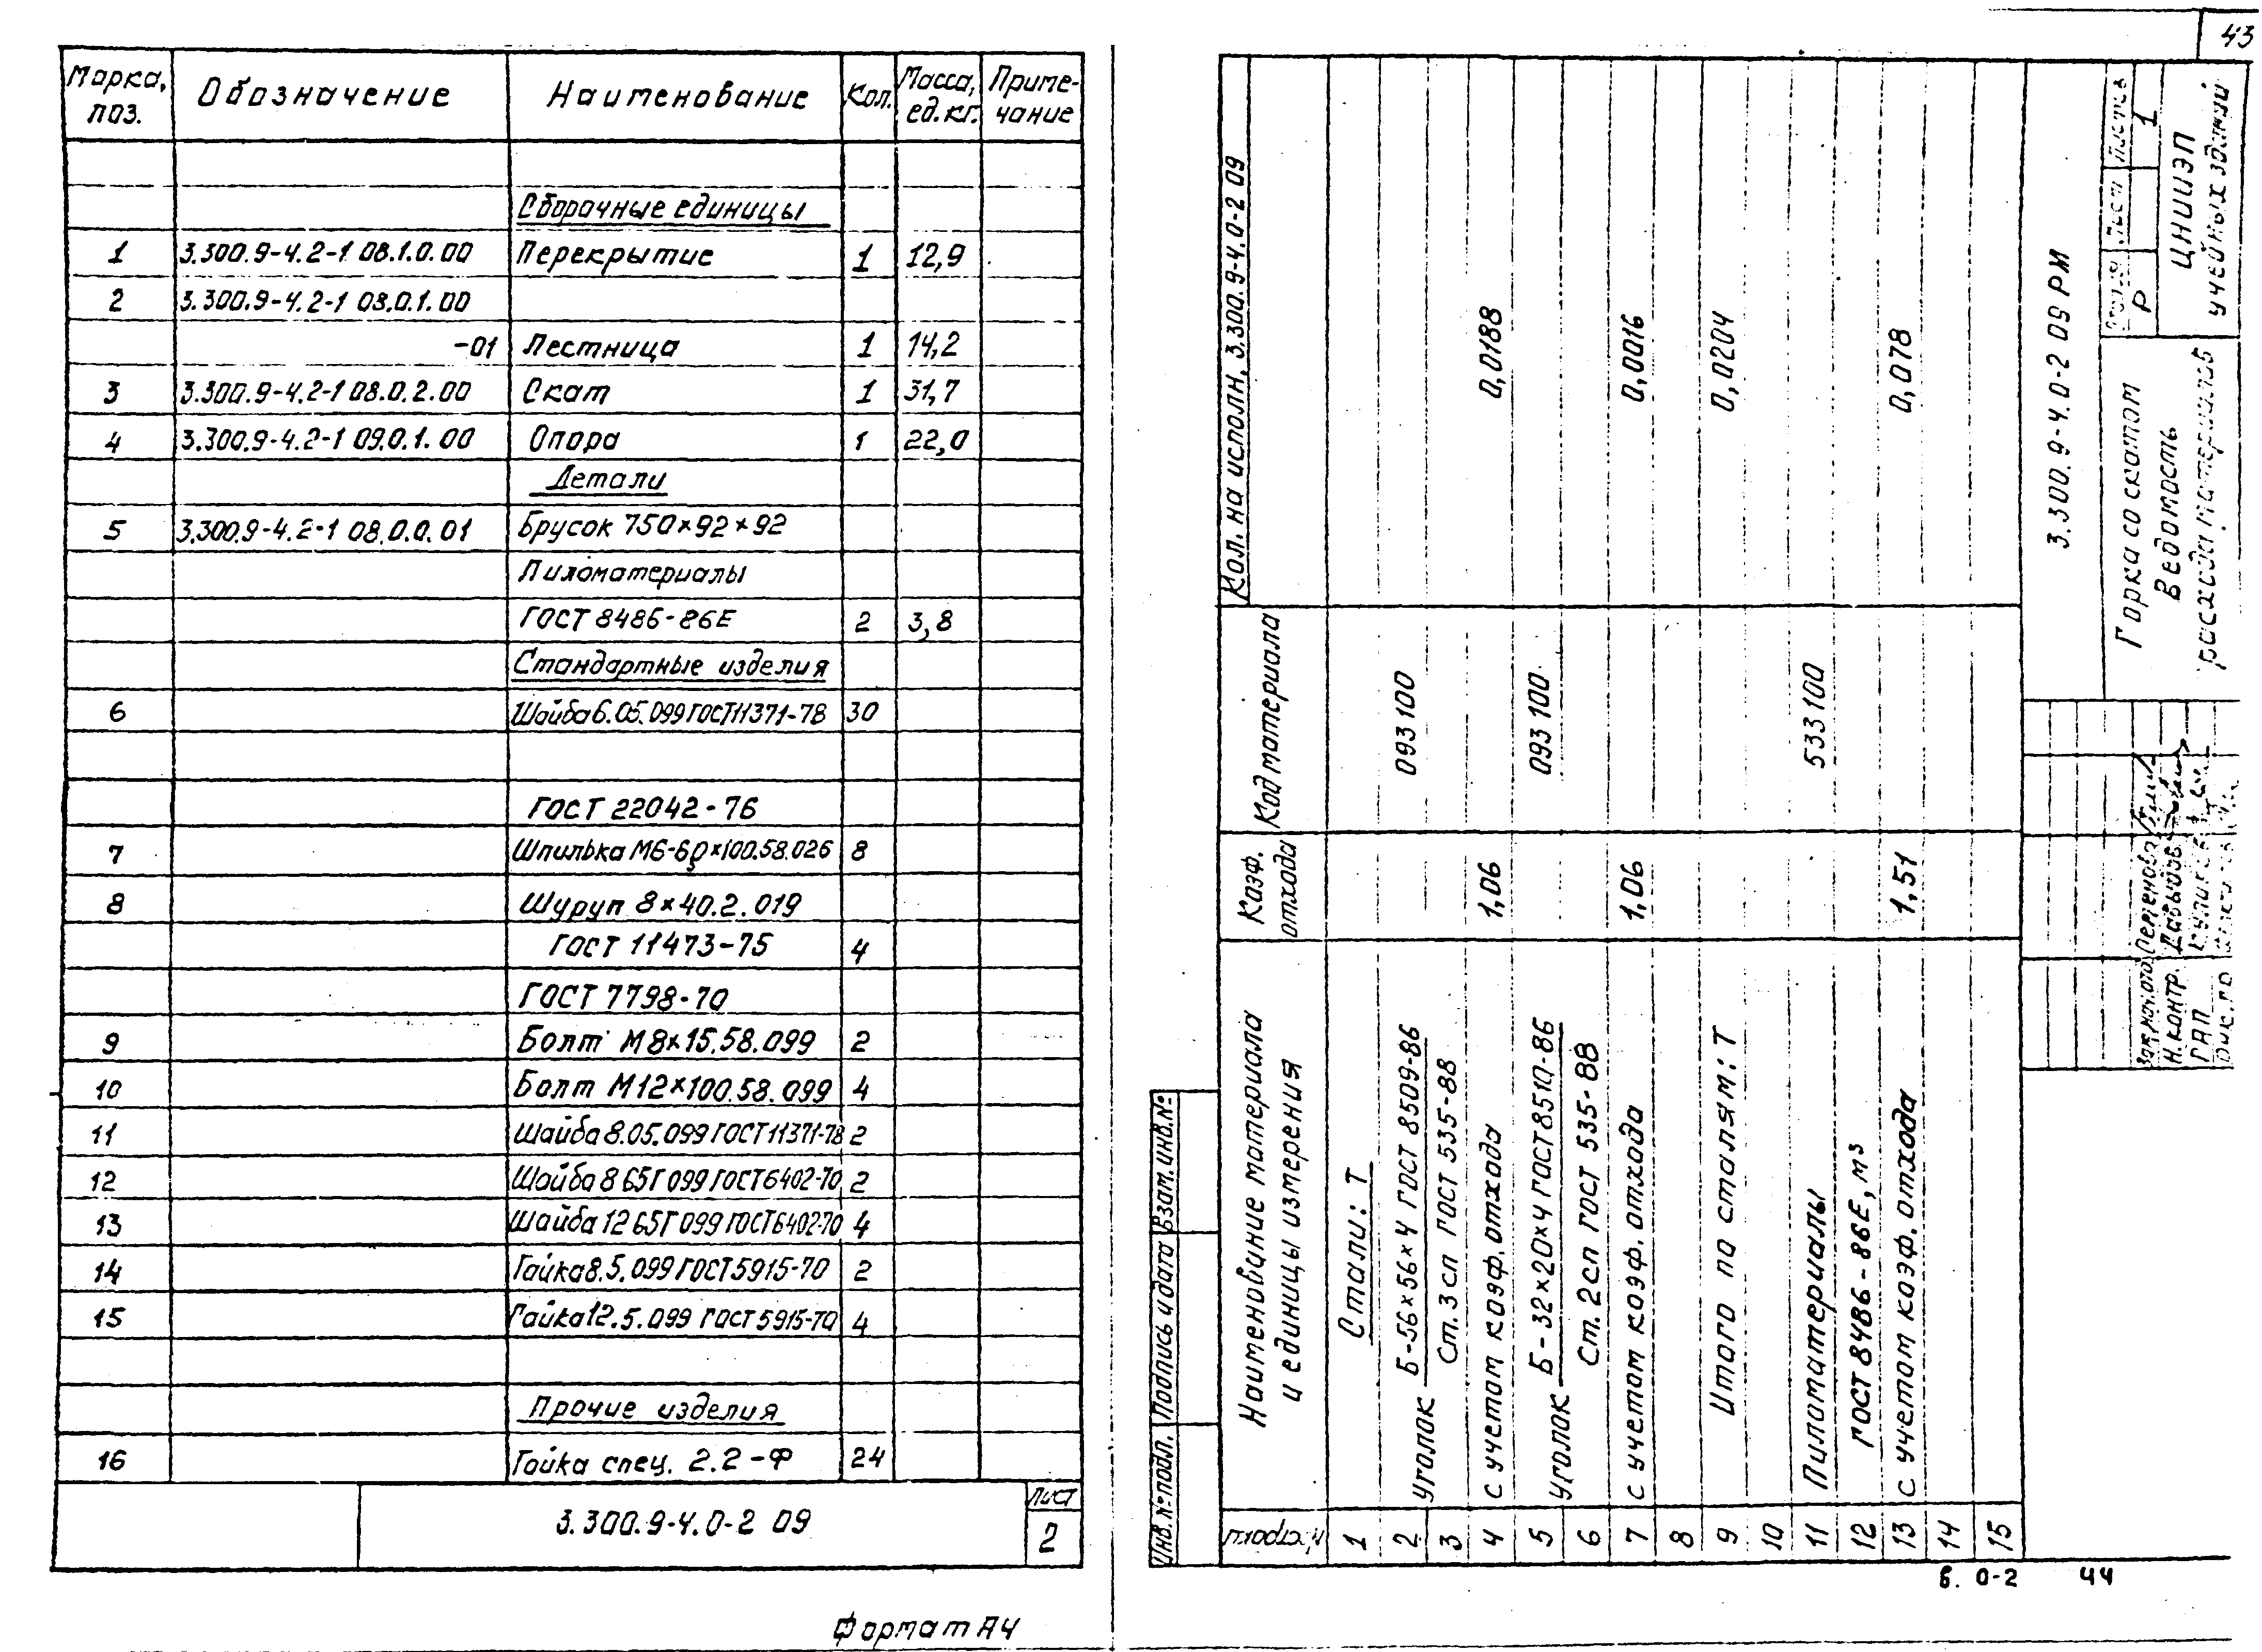 43
Марка, поз. Обозначение Наименование Кол. Масса, ед. кг. Приме-чание
Сборочные единицы
1 3.300.9-4.2-1 08.1.0.00 Перекрытие 1 12,9
2 3.300.9-4.2-1 08.0.1.00
-01 Лестница 1 14,2
3 3.300.9-4.2-1 08.0.2.00 Скат 1 31,7
4 3.300.9-4.2-1 09.0.1.00 Опора 1 22,0
Детали
5 3.300.9-4.2-1 08.0.0.01 Брусок 750×92×92
Пиломатериалы
ГОСТ 8486-86Е 2 3,8
Стандартные изделия
6 Шайба 6.05.099 ГОСТ 11371-78 30
ГОСТ 22042-76
7 Шпилька М6-6g×100.58.026 8
8 Шуруп 8×40.2.019
ГОСТ 11473-75 4
ГОСТ 7798-70
9 Болт М8×15.58.099 2
10 Болт М12×100.58.099 4
11 Шайба 8.05.099 ГОСТ 11371-78 2
12 Шайба 8 65Г 099 ГОСТ 6402-70 2
13 Шайба 12 65Г 099 ГОСТ 6402-70 4
14 Гайка 8.5.099 ГОСТ 5915-70 2
15 Гайка 12.5.099 ГОСТ 5915-70 4
Прочие изделия
16 Гайка спец. 2.2-Ф 24
3.300.9-4.0-2 09
Лист
2
Формат А4
№ строки Наименование материала и единицы измерения Коэф. отхода Код материала Кол. на исполн. 3.300.9-4.0-2 09
1 Стали: Т
2 Уголок Б-56×56×4 ГОСТ 8509-86 093100
3 Ст.3сп ГОСТ 535-88
4 с учетом коэф. отхода 1,06 0,0188
5 Уголок Б-32×20×4 ГОСТ 8510-86 093100
6 Ст.2сп ГОСТ 535-88
7 с учетом коэф. отхода 1,06 0,0016
8
9 Итого по сталям: Т 0,0204
10
11 Пиломатериалы 533100
12 ГОСТ 8486-86Е, м³
13 с учетом коэф. отхода 1,51 0,078
14
15
3.300.9-4.0-2 09 РМ
Горка со скатом
Ведомость
расхода материалов
Стадия Лист Листов
Р 1
ЦНИИЭП
учебных зданий
Н. контр. Давыдов
ГАП
Инв. № подл. Подпись и дата Взам. инв. №
в. 0-2 44